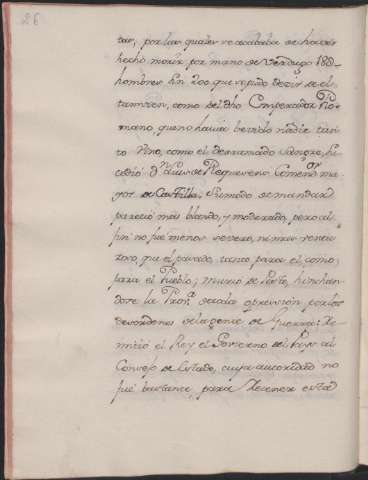 26
tas, por las quales se acababa de haver
hecho morir por mano de Verdugo 18@
hombres sin 200 que se pudo decir de el
tambien, como del dho Emperador Ro-
mano, que no havia bevido nadie tan-
to vino, como el derramado Sangre, su-
cedió Dn Luis de Requesens Comendor ma-
yor de Castilla, su modo de mandar
pareció mas blando, y moderado, pero al
fin no fue menos severo, ni mas ventu-
roso, que el pasado, tanto para el, como
para el Pueblo; murio de Peste, hinchan-
dose la Prova de la opression por los
desordenes de la gente de Guerra: Re-
mitió el Rey el Govierno del Pays al
Consejo de Estado, cuya autoridad no
fué bastante, para detener esta